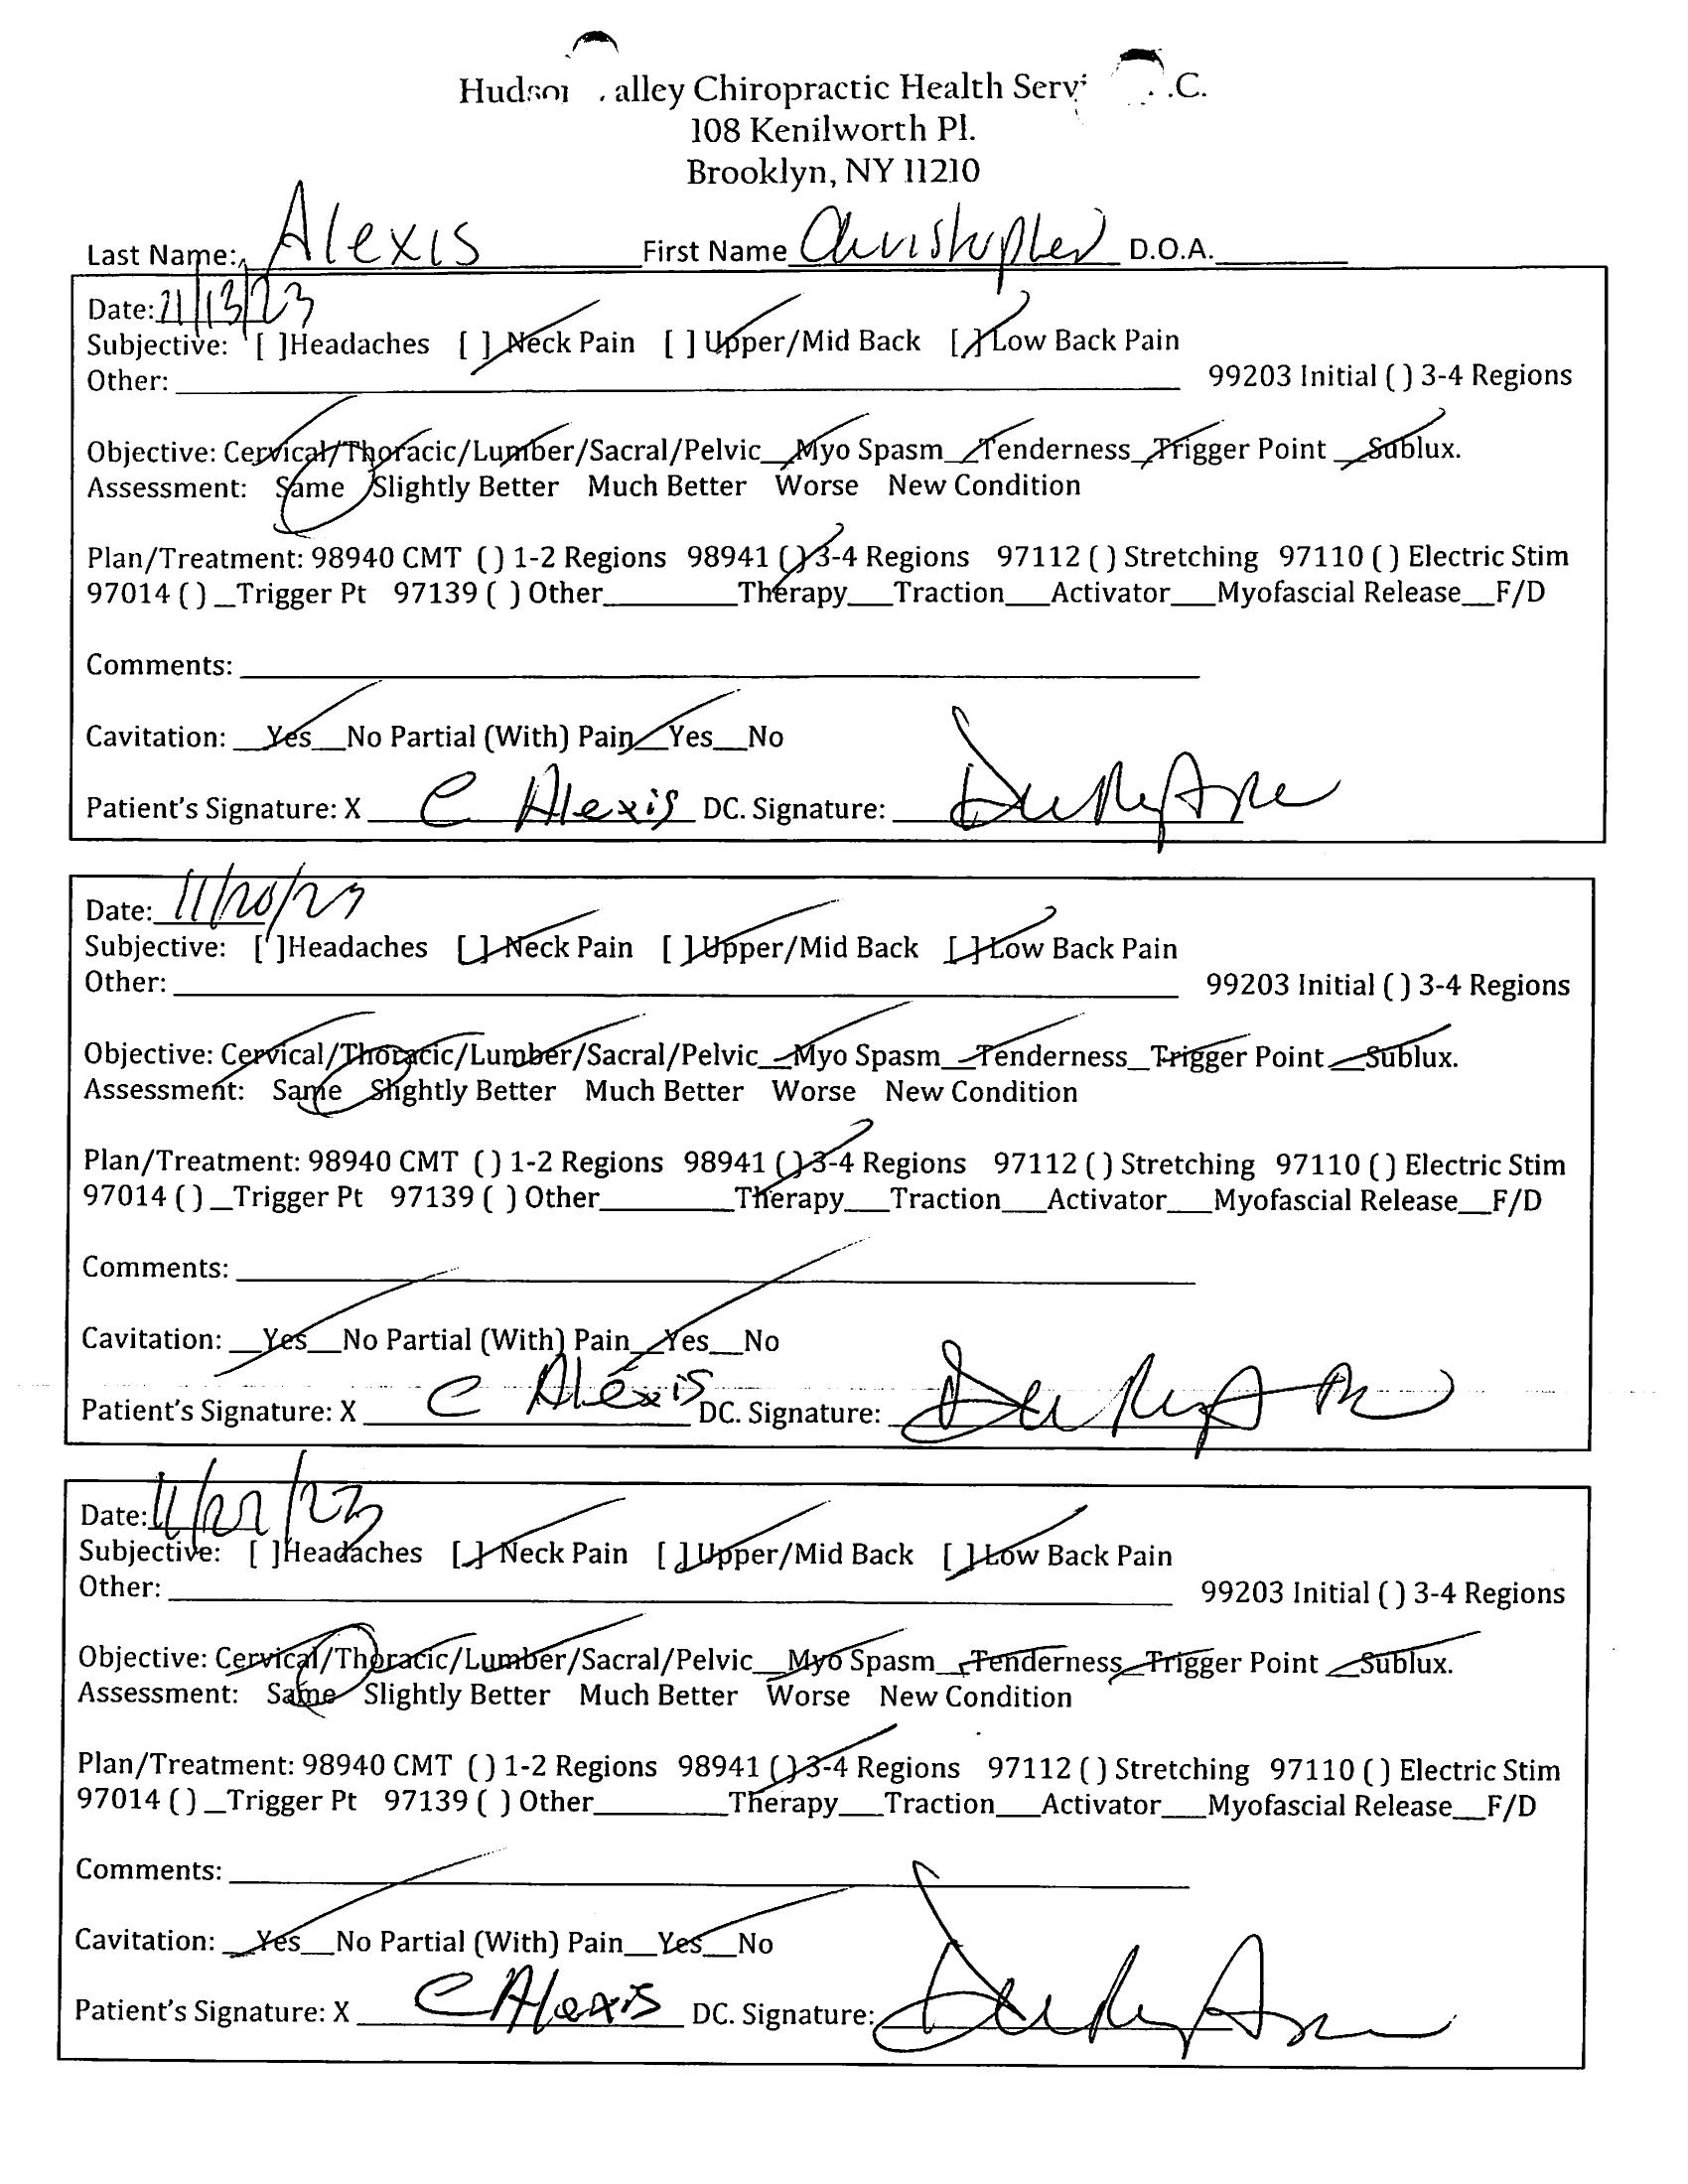 Hudson alley Chiropractic Health Serv .C.
108 Kenilworth Pl.
Brooklyn, NY 11210
Last Name: Alexis First Name Christopher D.O.A.
Date: 11/13/23
Subjective: [ ]Headaches [ ] Neck Pain [ ] Upper/Mid Back [ ] Low Back Pain
Other: 99203 Initial ( ) 3-4 Regions
Objective: Cervical/Thoracic/Lumber/Sacral/Pelvic__Myo Spasm__Tenderness__Trigger Point __Sublux.
Assessment: Same Slightly Better Much Better Worse New Condition
Plan/Treatment: 98940 CMT ( ) 1-2 Regions 98941 ( ) 3-4 Regions 97112 ( ) Stretching 97110 ( ) Electric Stim
97014 ( ) _Trigger Pt 97139 ( ) Other________Therapy___Traction___Activator___Myofascial Release__F/D
Comments:
Cavitation: __Yes__No Partial (With) Pain__Yes__No
Patient's Signature: X C Alexis DC. Signature:
Date: 11/20/23
Subjective: [ ]Headaches [ ] Neck Pain [ ] Upper/Mid Back [ ] Low Back Pain
Other: 99203 Initial ( ) 3-4 Regions
Objective: Cervical/Thoracic/Lumber/Sacral/Pelvic__Myo Spasm__Tenderness__Trigger Point __Sublux.
Assessment: Same Slightly Better Much Better Worse New Condition
Plan/Treatment: 98940 CMT ( ) 1-2 Regions 98941 ( ) 3-4 Regions 97112 ( ) Stretching 97110 ( ) Electric Stim
97014 ( ) _Trigger Pt 97139 ( ) Other________Therapy___Traction___Activator___Myofascial Release__F/D
Comments:
Cavitation: __Yes__No Partial (With) Pain__Yes__No
Patient's Signature: X C Alexis DC. Signature:
Date: 11/22/23
Subjective: [ ]Headaches [ ] Neck Pain [ ] Upper/Mid Back [ ] Low Back Pain
Other: 99203 Initial ( ) 3-4 Regions
Objective: Cervical/Thoracic/Lumber/Sacral/Pelvic__Myo Spasm__Tenderness__Trigger Point __Sublux.
Assessment: Same Slightly Better Much Better Worse New Condition
Plan/Treatment: 98940 CMT ( ) 1-2 Regions 98941 ( ) 3-4 Regions 97112 ( ) Stretching 97110 ( ) Electric Stim
97014 ( ) _Trigger Pt 97139 ( ) Other________Therapy___Traction___Activator___Myofascial Release__F/D
Comments:
Cavitation: __Yes__No Partial (With) Pain__Yes__No
Patient's Signature: X C Alexis DC. Signature: